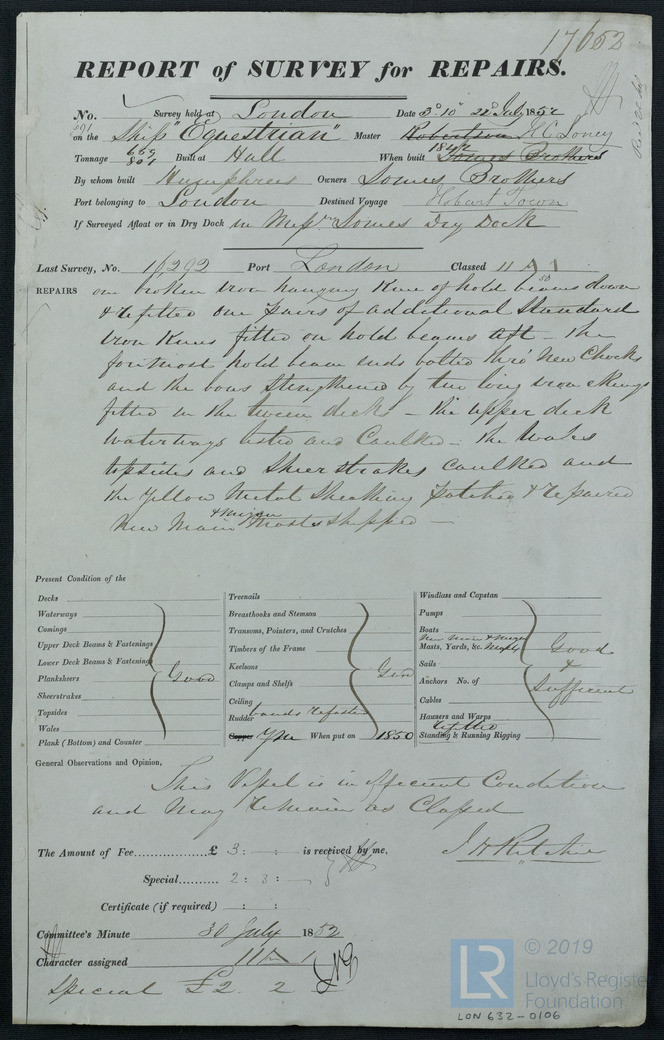 17652
REPORT of SURVEY for REPAIRS.
No. Survey held at London Date 3d 10 22d July 1852
on the Ship "Equestrian" Master Robertson
Tonnage 669 801 Built at Hull When built 1842 Somes Brothers
By whom built Humphries Owners Somes Brothers
Port belonging to London Destined Voyage Hobart Town
If Surveyed Afloat or in Dry Dock in Messrs Somes Dry Dock
Last Survey, No. 16292 Port London Classed 11 A 1
REPAIRS one broken iron hanging Knee of hold beams down
& refitted one pairs of additional Standard
iron Knees fitted on hold beams aft - the
foremost hold beam ends bolted thro' New Chocks
and the bows Strengthened by two long iron
fitted in the tween decks - the upper deck
Waterways listed and Caulked - the Wales
topsides and Sheerstrakes caulked and
the Yellow Metal Sheathing patched & repaired
New Main & Mizen Masts Shipped -
Present Condition of the
Decks
Waterways
Comings
Upper Deck Beams & Fastenings
Lower Deck Beams & Fastenings
Planksheers Good
Sheerstrakes
Topsides
Wales
Plank (Bottom) and Counter
Treenails
Breasthooks and Stemson
Transoms, Pointers, and Crutches
Timbers of the Frame
Keelsons Good
Clamps and Shelfs
Ceiling
Rudder
Copper YM When put on 1850
Windlass and Capstan
Pumps
Boats
New Main & Mizen
Masts, Yards, &c. Good
Sails &
Anchors No. of Sufficient
Cables
Hausers and Warps
refitted
Standing & Running Rigging
General Observations and Opinion,
This Vessel is in efficient Condition
and May remain as Classed
The Amount of Fee £ 3 : - : - is received by me, J H Ritchie
Special 2 : 2 : -
Certificate (if required) : :
Committee's Minute 30 July 1852
Character assigned 11 A 1
Special £2. 2
LR © 2019
Lloyd's Register
Foundation
LON 632-0106